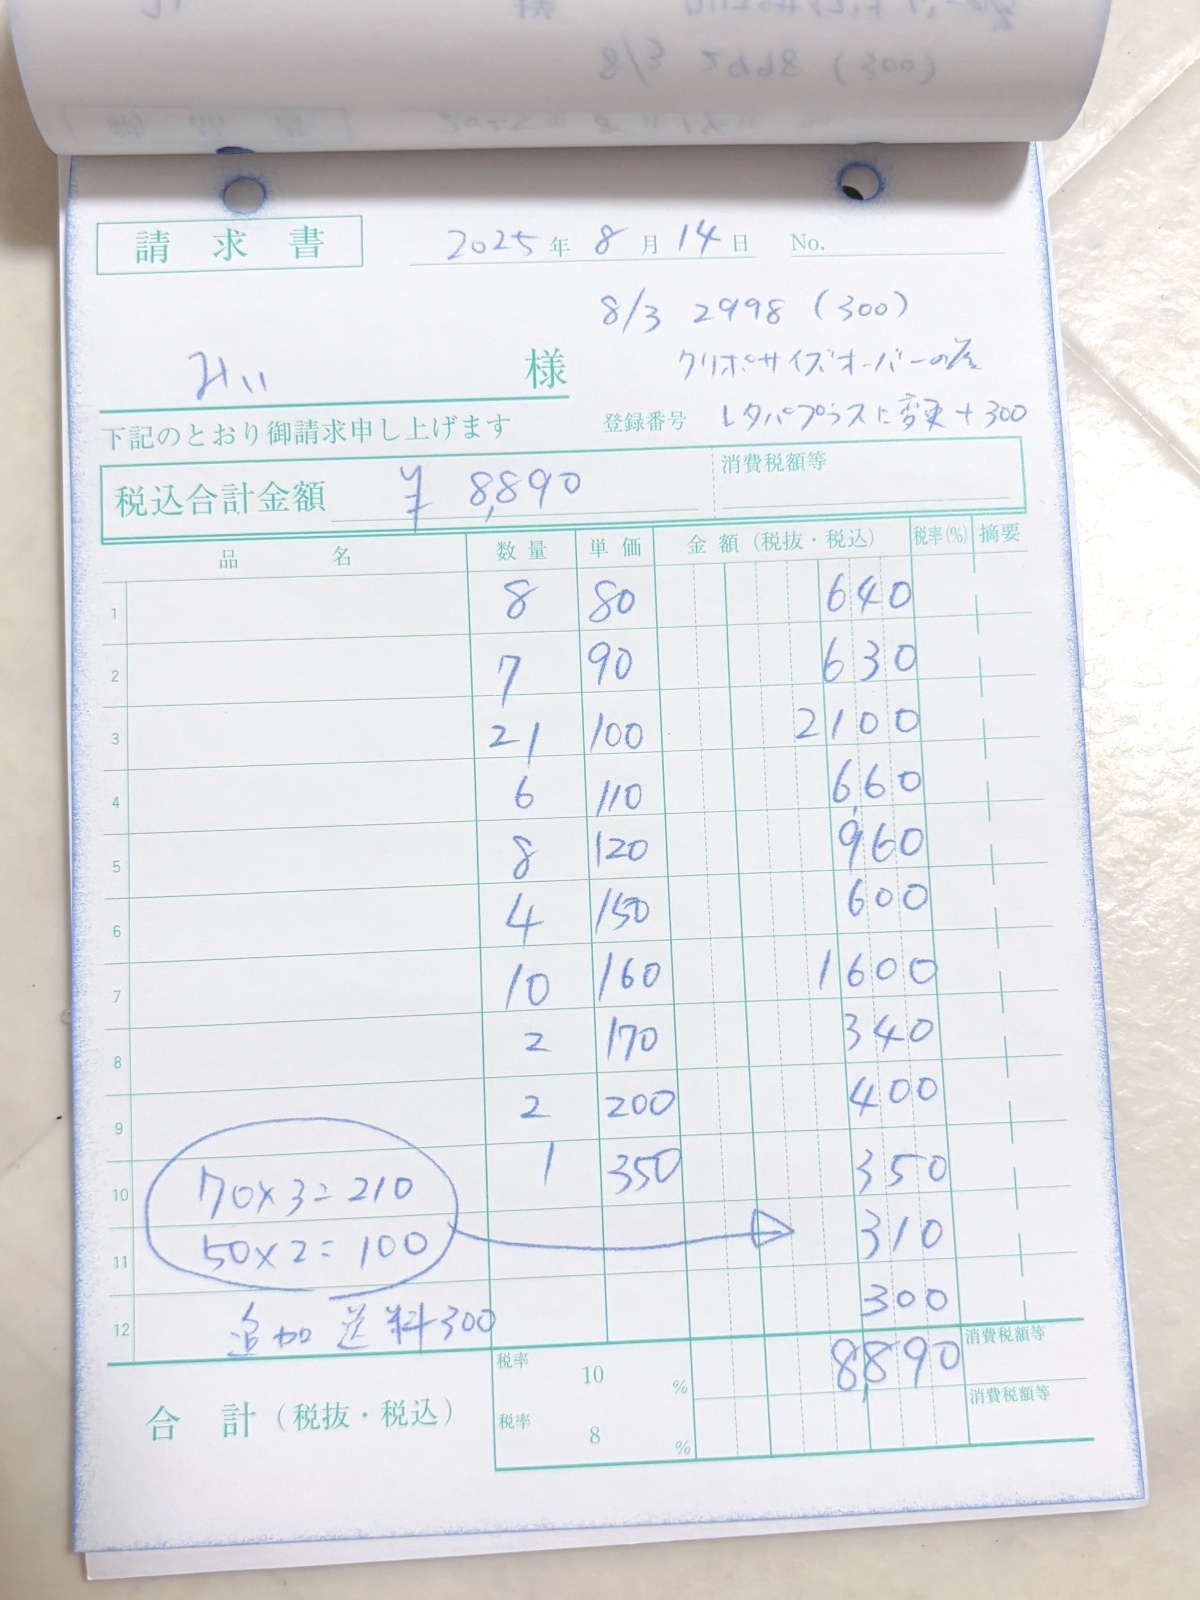 8/3 2998 (300)
請求書 2025年 8月 14日 No.
8/3 2998 (300)
みい 様
クリポサイズオーバーの為
下記のとおり御請求申し上げます
登録番号 レタパプラスに変更+300
税込合計金額 ¥8,890 消費税額等
品名 数量 単価 金額(税抜・税込) 税率(%) 摘要
1 8 80 640
2 7 90 630
3 21 100 2100
4 6 110 660
5 8 120 960
6 4 150 600
7 10 160 1600
8 2 170 340
9 2 200 400
10 70×3=210 1 350 350
11 50×2=100 310
12 追加送料300 300
合計(税抜・税込) 税率 10% 8,890 消費税額等
税率 8% 消費税額等